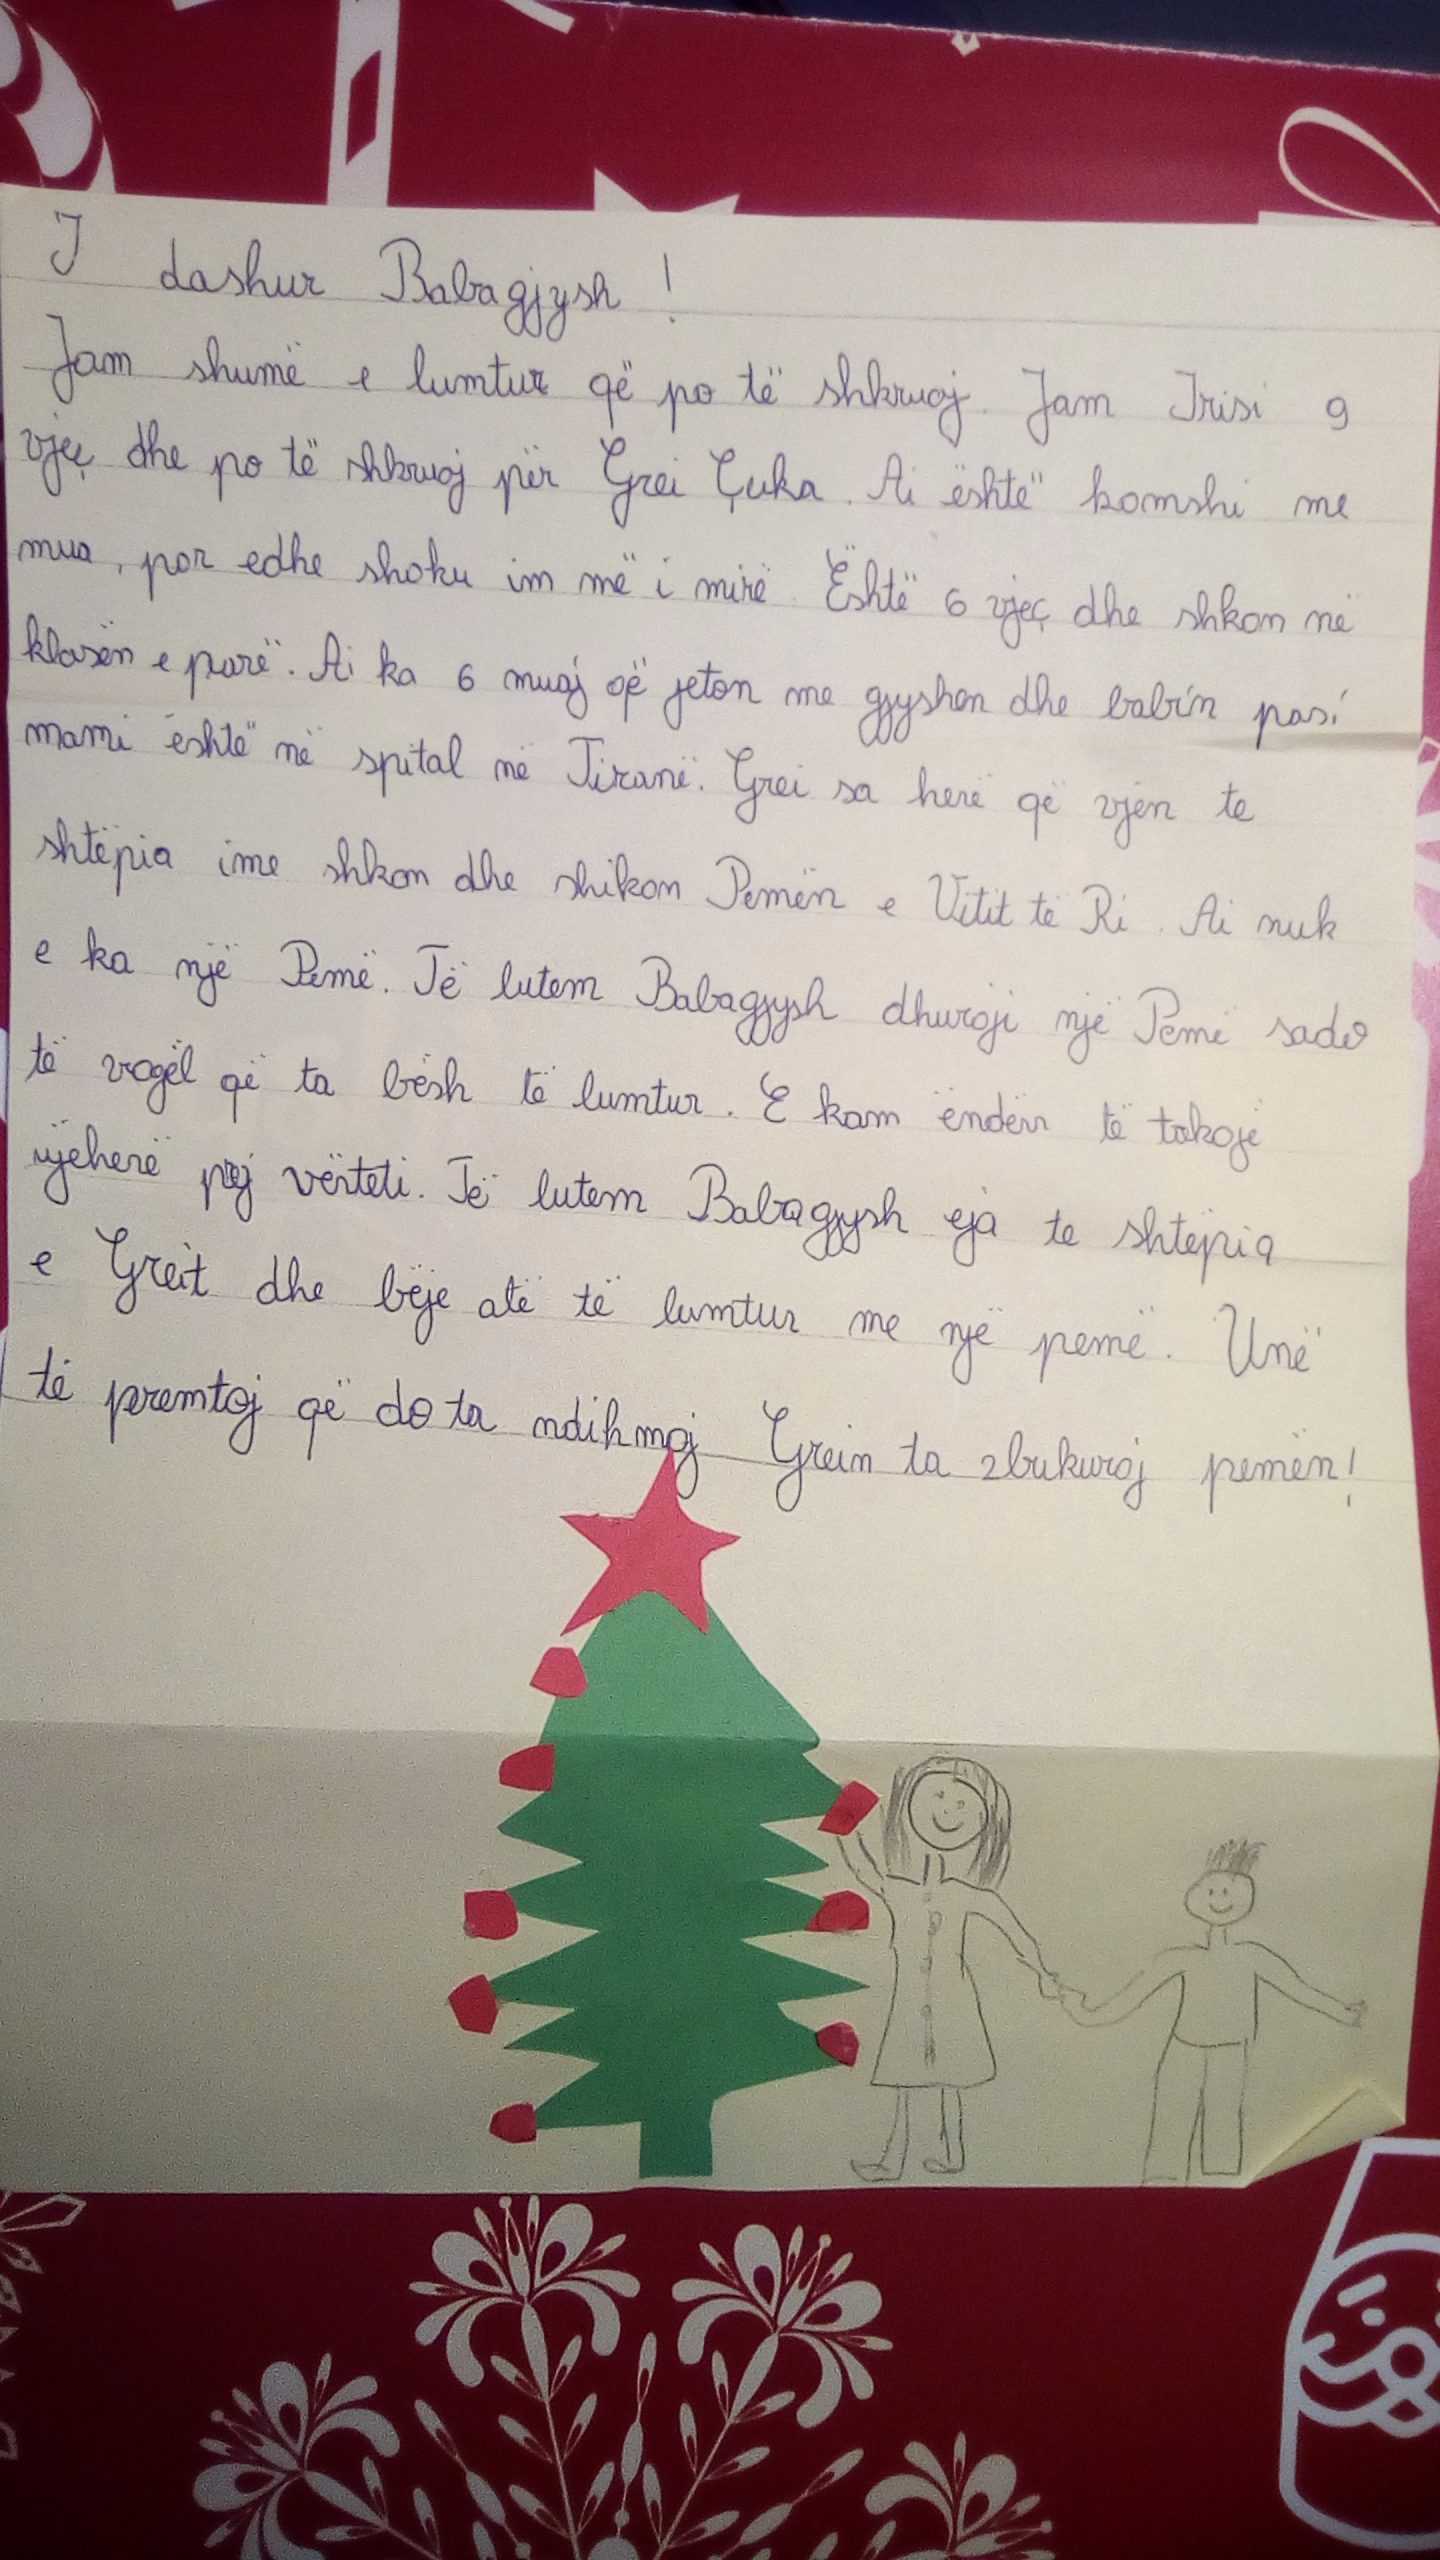 I dashur Babagjysh!
Jam shumë e lumtur që po të shkruaj. Jam Irisi 9
vjeç dhe po të shkruaj për Grei Çuka. Ai është komshi me
mua, por edhe shoku im më i mirë. Është 6 vjeç dhe shkon në
klasën e parë. Ai ka 6 muaj që jeton me gjyshen dhe babin pasi
mami është në spital në Tiranë. Grei sa herë që vjen te
shtëpia ime shkon dhe shikon Pemën e Vitit të Ri. Ai nuk
e ka një Pemë. Të lutem Babagjysh dhuroji një Pemë sado
të vogël që ta bësh të lumtur. E kam ëndërr të takojë
njëherë prej vërteti. Të lutem Babagjysh eja te shtëpia
e Greit dhe bëje atë të lumtur me një pemë. Unë
të premtoj që do ta ndihmoj Grein ta zbukuroj pemën!